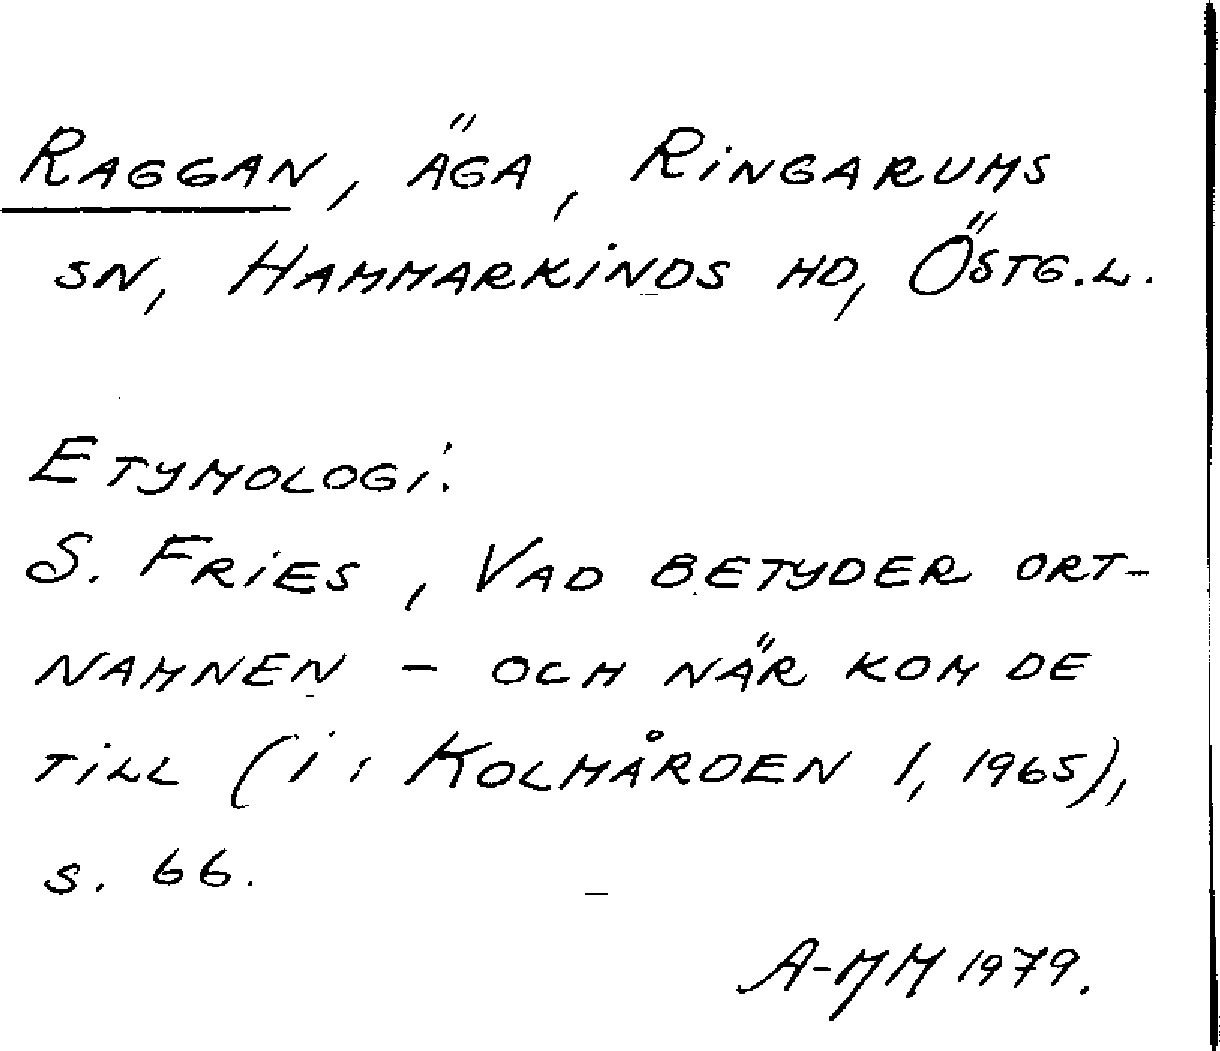 RAGGAN, ÄGA, RINGARUMS
SN, HAMMARKINDS HD, ÖSTG.L.
ETYMOLOGI:
S. FRIES, VAD BETYDER ORT-
NAMNEN – OCH NÄR KOM DE
TILL (I: KOLMÅRDEN 1, 1965),
S. 66.
A-MM 1979.